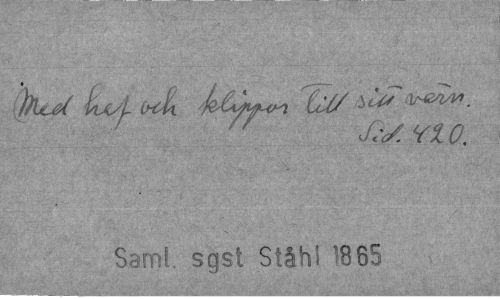 Med haf och klippor till sitt värn.
Sid. 420.
Saml. sgst Ståhl 1865